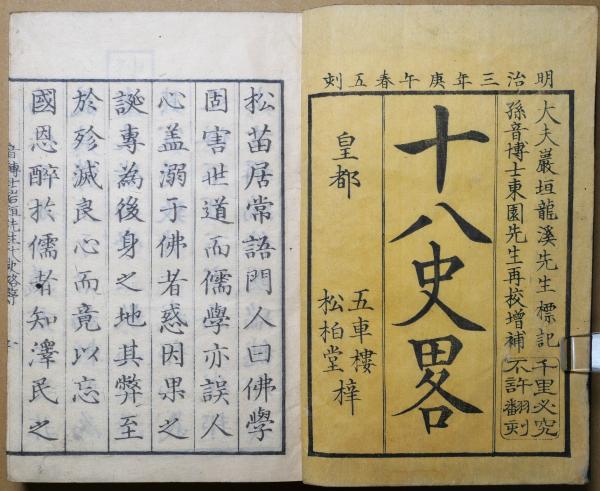 明治三年庚午春五刻
大夫巖垣龍溪先生標記
孫音博士東園先生再校增補
千里必究
不許翻刻
十八史畧
皇都
五車樓
松柏堂
梓
松苗居常語門人曰佛學
固害世道而儒學亦誤人
心盖溺于佛者惑因果之
誕專為後身之地其弊至
於殄滅良心而竟以忘
國恩醉於儒者知澤民之
音博士岩垣先生十八史略序